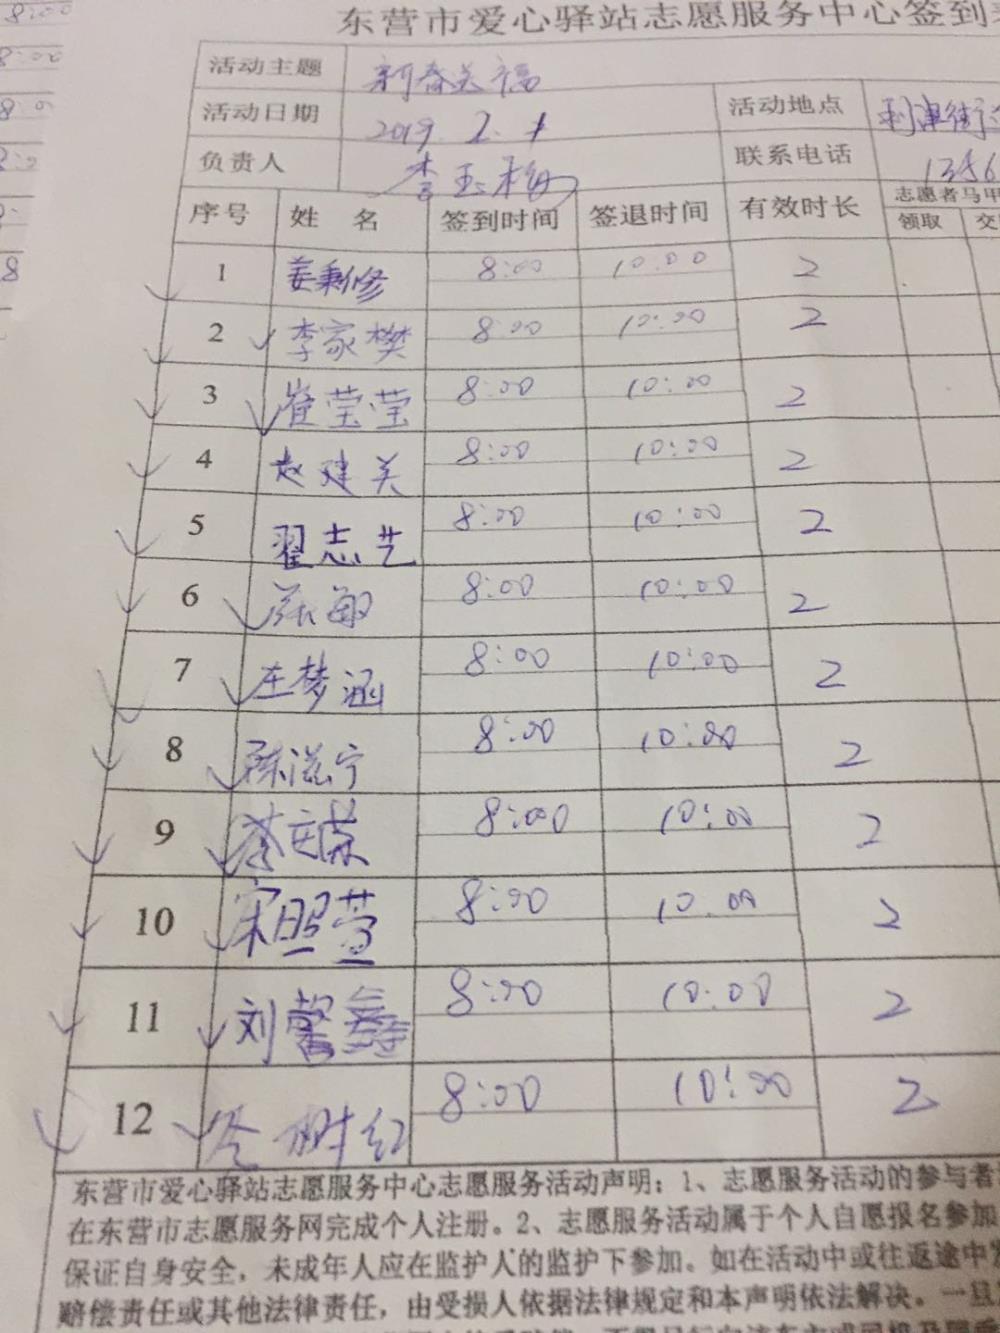 东营市爱心驿站志愿服务中心签到
活动主题 新春送福
活动日期 2019. 2. 1 活动地点 利津街
负责人 李玉梅 联系电话 1356
序号 姓 名 签到时间 签退时间 有效时长 志愿者马甲
领取 交
1 姜秉修 8:00 10:00 2
2 李家樊 8:00 10:00 2
3 崔莹莹 8:00 10:00 2
4 赵建美 8:00 10:00 2
5 翟志艺 8:00 10:00 2
6 张敏 8:00 10:00 2
7 庄梦涵 8:00 10:00 2
8 陈滋宁 8:00 10:00 2
9 8:00 10:00 2
10 宋照萱 8:00 10.00 2
11 刘馨 8:00 10:00 2
12 树红 8:00 10:00 2
东营市爱心驿站志愿服务中心志愿服务活动声明：1、志愿服务活动的参与者
在东营市志愿服务网完成个人注册。2、志愿服务活动属于个人自愿报名参加
保证自身安全，未成年人应在监护人的监护下参加。如在活动中或往返途中
赔偿责任或其他法律责任，由受损人依据法律规定和本声明依法解决。一旦
8:00
8:00
8:0
8:0
8